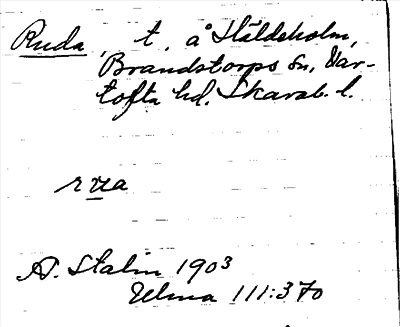 Ruda, t, å Häldeholm,
Brandstorps sn, Var-
tofta hd. Skarab. l.
rua
A. Stalin 1903
Ulma 111:370